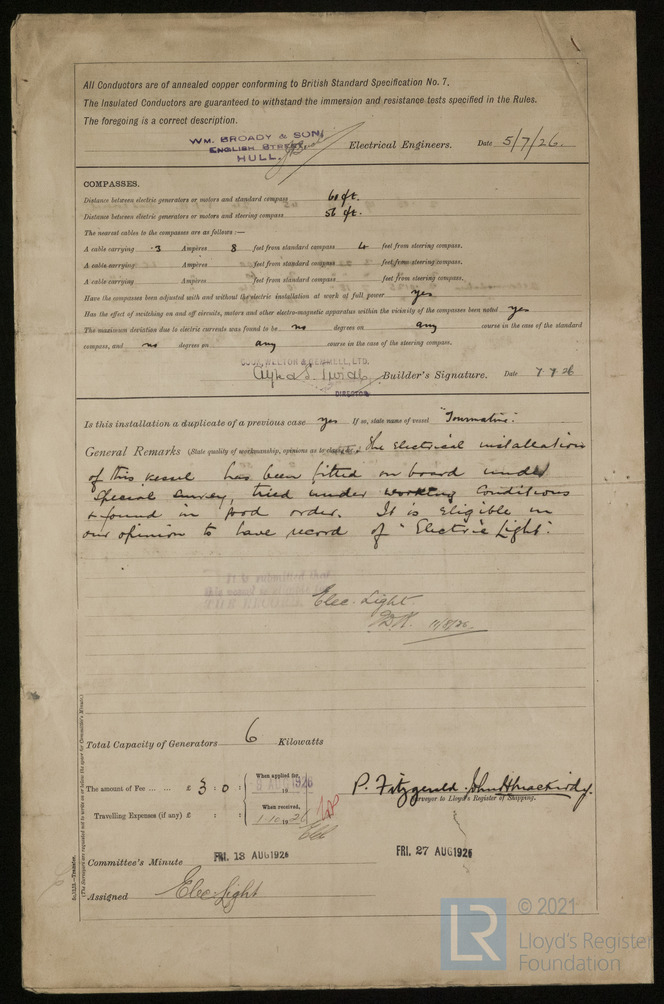 All Conductors are of annealed copper conforming to British Standard Specification No. 7.
The Insulated Conductors are guaranteed to withstand the immersion and resistance tests specified in the Rules.
The foregoing is a correct description.
WM. BROADY & SON,
ENGLISH STREET,
HULL.
Electrical Engineers. Date 5/7/26.
COMPASSES.
Distance between electric generators or motors and standard compass 60 ft.
Distance between electric generators or motors and steering compass 56 ft.
The nearest cables to the compasses are as follows:—
A cable carrying .3 Ampères 8 feet from standard compass 4 feet from steering compass.
A cable carrying Ampères feet from standard compass feet from steering compass.
A cable carrying Ampères feet from standard compass feet from steering compass.
Have the compasses been adjusted with and without the electric installation at work at full power yes
Has the effect of switching on and off circuits, motors and other electro-magnetic apparatus within the vicinity of the compasses been noted yes
The maximum deviation due to electric currents was found to be no degrees on any course in the case of the standard
compass, and no degrees on any course in the case of the steering compass.
COOK, WELTON & GEMMELL, LTD.
Builder's Signature. Date 7 7 26
DIRECTOR
Is this installation a duplicate of a previous case yes If so, state name of vessel
General Remarks (State quality of workmanship, opinions as to class, &c. The Electrical installation
of this vessel has been fitted on board under
special survey, tried under working conditions
& found in good order. It is eligible in
our opinion to have record of "Electric Light".
It is submitted that
this vessel
THE RECORD
Elec. Light
11/8/26
Total Capacity of Generators 6 Kilowatts
The amount of Fee ... ... £ 3 : 0 :
When applied for,
6 AUG 1926
Travelling Expenses (if any) £ : :
When received,
1.10.1926
P. Fitzgerald.
Surveyor to Lloyd's Register of Shipping.
Committee's Minute FRI. 13 AUG 1926
FRI. 27 AUG 1926
Assigned Elec Light
(The Surveyors are requested not to write on or below the space for Committee's Minute.)
© 2021
LR
Lloyd's Register
Foundation